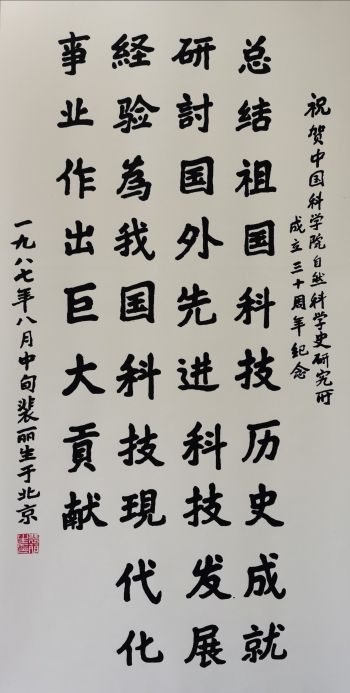 祝贺中国科学院自然科学史研究所
成立三十周年纪念
总结祖国科技历史成就
研討国外先进科技发展
経验為我国科技現代化
事业作出巨大貢献
一九八七年八月中旬裴丽生于北京